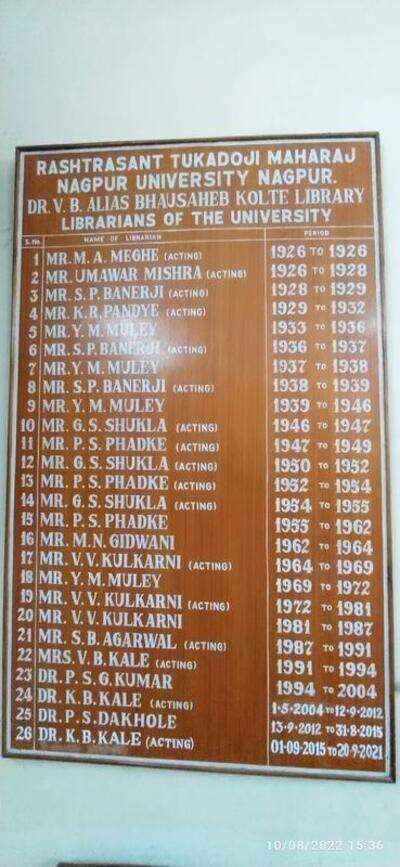 RASHTRASANT TUKADOJI MAHARAJ
NAGPUR UNIVERSITY NAGPUR.
DR. V. B. ALIAS BHAUSAHEB KOLTE LIBRARY
LIBRARIANS OF THE UNIVERSITY
S. No. NAME OF LIBRARIAN PERIOD
1 MR. M. A. MEGHE (ACTING) 1926 TO 1926
2 MR. UMAWAR MISHRA (ACTING) 1926 TO 1928
3 MR. S. P. BANERJI (ACTING) 1928 TO 1929
4 MR. K. R. PANDYE (ACTING) 1929 TO 1932
5 MR. Y. M. MULEY 1933 TO 1936
6 MR. S. P. BANERJI (ACTING) 1936 TO 1937
7 MR. Y. M. MULEY 1937 TO 1938
8 MR. S. P. BANERJI (ACTING) 1938 TO 1939
9 MR. Y. M. MULEY 1939 TO 1946
10 MR. G. S. SHUKLA (ACTING) 1946 TO 1947
11 MR. P. S. PHADKE (ACTING) 1947 TO 1949
12 MR. G. S. SHUKLA (ACTING) 1950 TO 1952
13 MR. P. S. PHADKE (ACTING) 1952 TO 1954
14 MR. G. S. SHUKLA (ACTING) 1954 TO 1955
15 MR. P. S. PHADKE 1955 TO 1962
16 MR. M. N. GIDWANI 1962 TO 1964
17 MR. V. V. KULKARNI (ACTING) 1964 TO 1969
18 MR. Y. M. MULEY 1969 TO 1972
19 MR. V. V. KULKARNI (ACTING) 1972 TO 1981
20 MR. V. V. KULKARNI 1981 TO 1987
21 MR. S. B. AGARWAL (ACTING) 1987 TO 1991
22 MRS. V. B. KALE (ACTING) 1991 TO 1994
23 DR. P. S. G. KUMAR 1994 TO 2004
24 DR. K. B. KALE (ACTING) 1-5-2004 TO 12-9-2012
25 DR. P. S. DAKHOLE 13-9-2012 TO 31-8-2015
26 DR. K. B. KALE (ACTING) 01-09-2015 TO 20-9-2021
10/08/2022 15:36